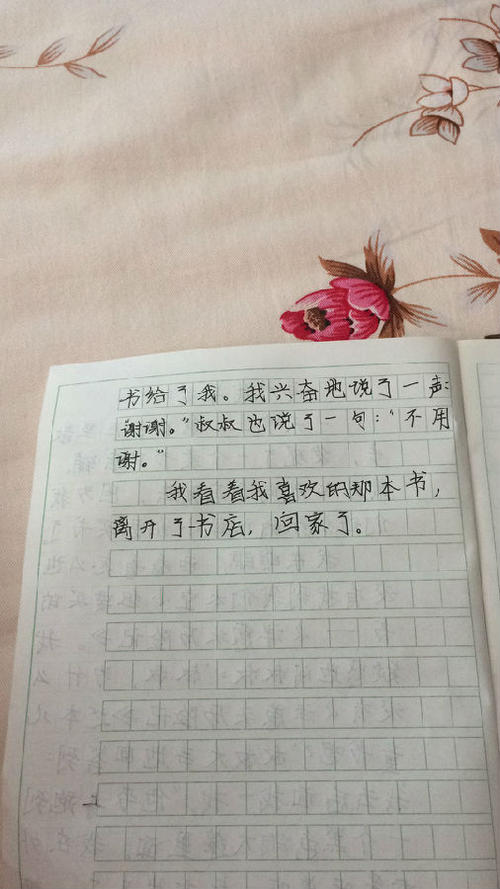 书给了我。我兴奋地说了一声：
谢谢。”叔叔也说了一句：“不用
谢。”
我看着我喜欢的那本书，
离开了书店，回家了。